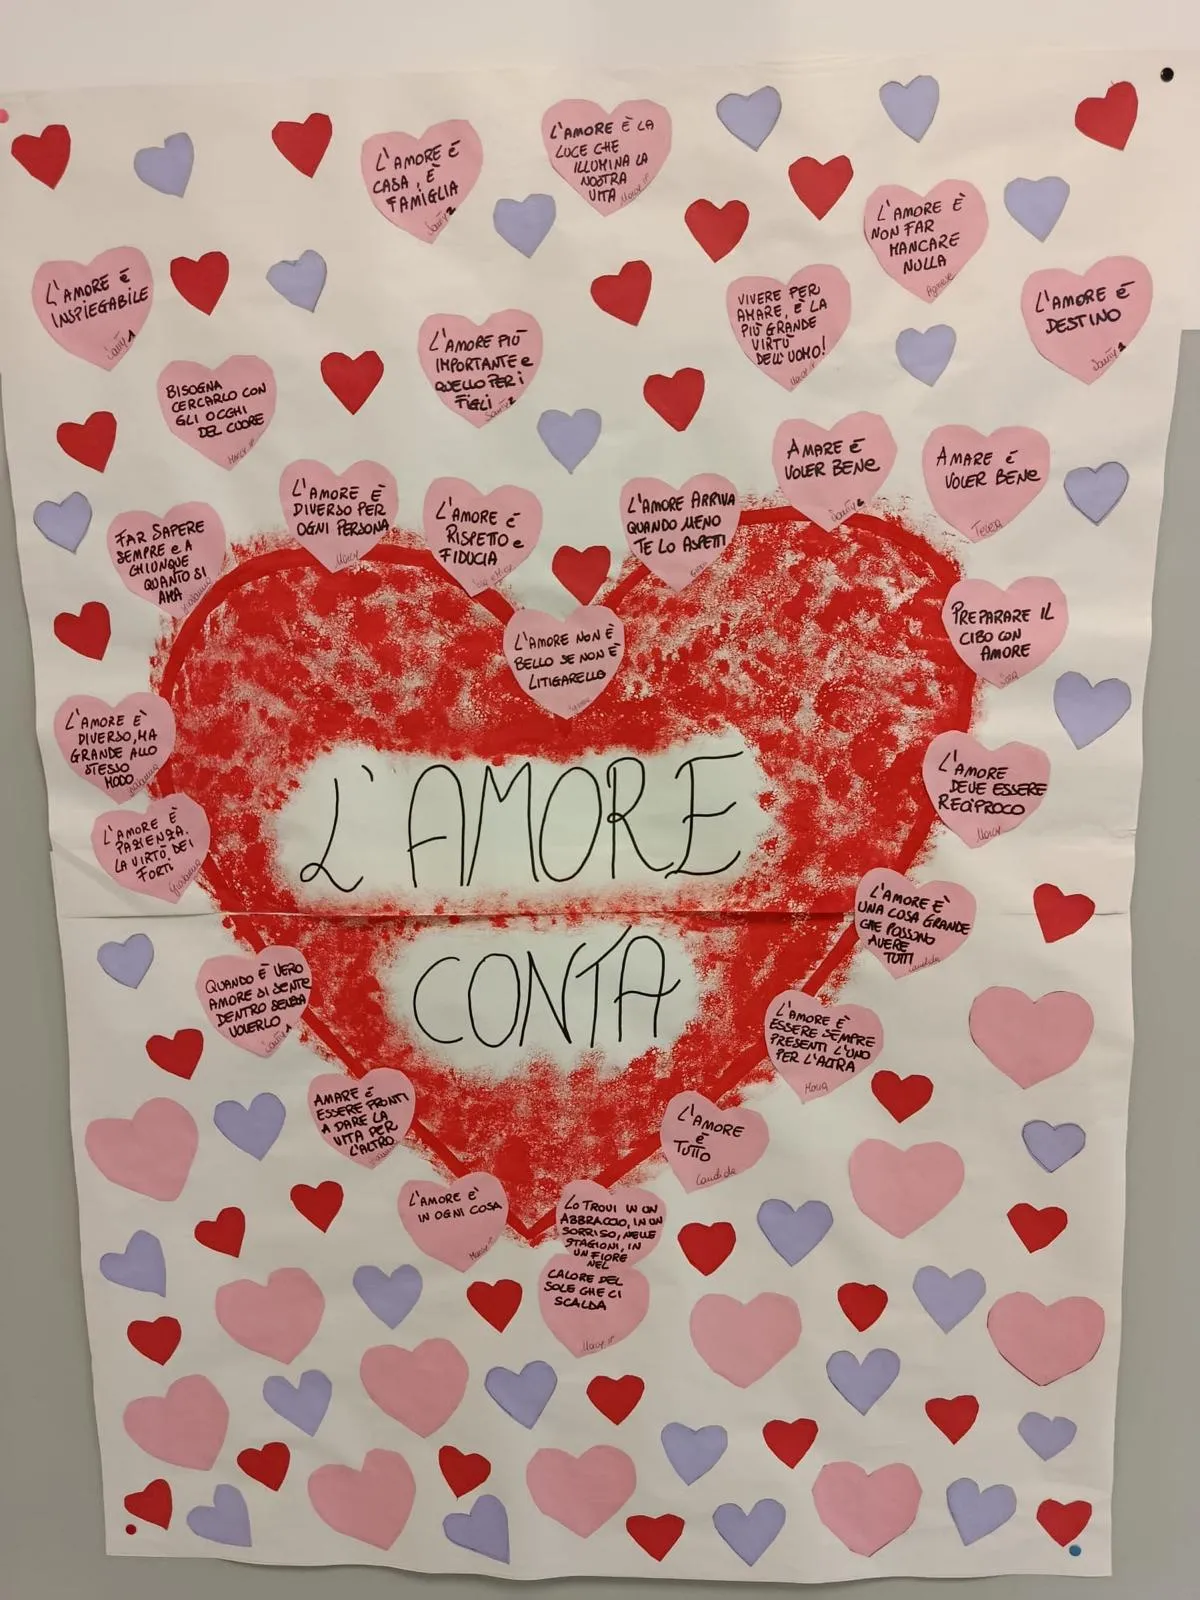 L'AMORE È
CASA, È
FAMIGLIA
Santy 2
L'AMORE È LA
LUCE CHE
ILLUMINA LA
NOSTRA
VITA
L'AMORE È
NON FAR
MANCARE
NULLA
Agnese
L'AMORE È
INSPIEGABILE
Santy 1
L'AMORE PIÙ
IMPORTANTE e
QUELLO PER i
FIGLI
Santy 2
VIVERE PER
AMARE, È LA
PIÙ GRANDE
VIRTÙ
DELL'UOMO!
L'AMORE È
DESTINO
Santy 2
BISOGNA
CERCARLO CON
GLI OCCHI
DEL CUORE
AMARE È
VOLER BENE
AMARE É
VOLER BENE
Teresa
FAR SAPERE
SEMPRE e A
CHIUNQUE
QUANTO SI
AMA
Giovanna
L'AMORE È
DIVERSO PER
OGNI PERSONA
Mary
L'AMORE É
RISPETTO e
FIDUCIA
L'AMORE ARRIVA
QUANDO MENO
TE LO ASPETTI
L'AMORE NON È
BELLO SE NON È
LITIGARELLO
PREPARARE IL
CIBO CON
AMORE
L'AMORE È
DIVERSO, MA
GRANDE ALLO
STESSO
MODO
L'AMORE
DEVE ESSERE
RECIPROCO
Mary
L'AMORE È
PAZIENZA.
LA VIRTÙ DEI
FORTI
Giovanna
L'AMORE
CONTA
L'AMORE È
UNA COSA GRANDE
CHE POSSONO
AVERE
TUTTI
Candida
QUANDO È VERO
AMORE SI SENTE
DENTRO SENZA
VOLERLO
Santy 1
L'AMORE È
ESSERE SEMPRE
PRESENTI L'UNO
PER L'ALTRA
Maria
AMARE È
ESSERE PRONTI
A DARE LA
VITA PER
L'ALTRO
L'AMORE
È
TUTTO
Candida
L'AMORE È
IN OGNI COSA
LO TROVI IN UN
ABBRACCIO, IN UN
SORRISO, NELLE
STAGIONI, IN
UN FIORE
NEL
CALORE DEL
SOLE CHE CI
SCALDA